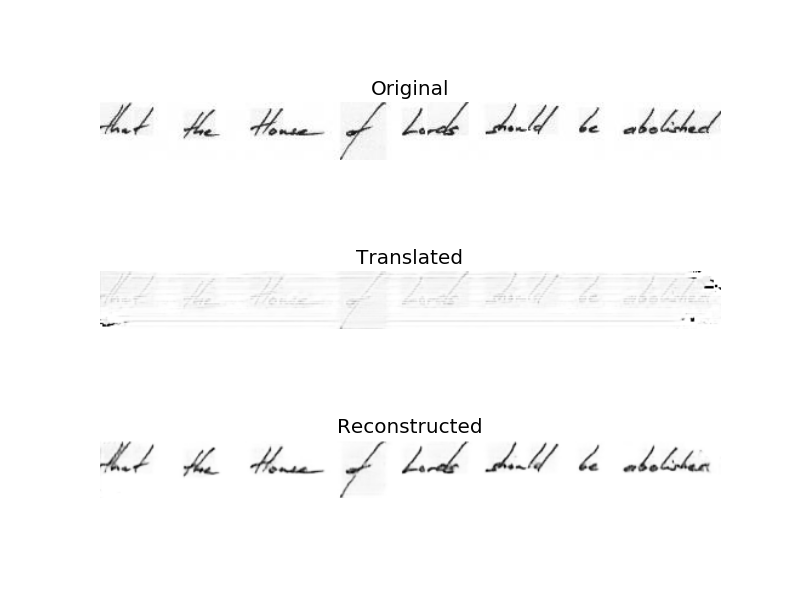 Original
that the House of Lords should be abolished
Translated
that the House of Lords should be
Reconstructed
that the House of Lords should be